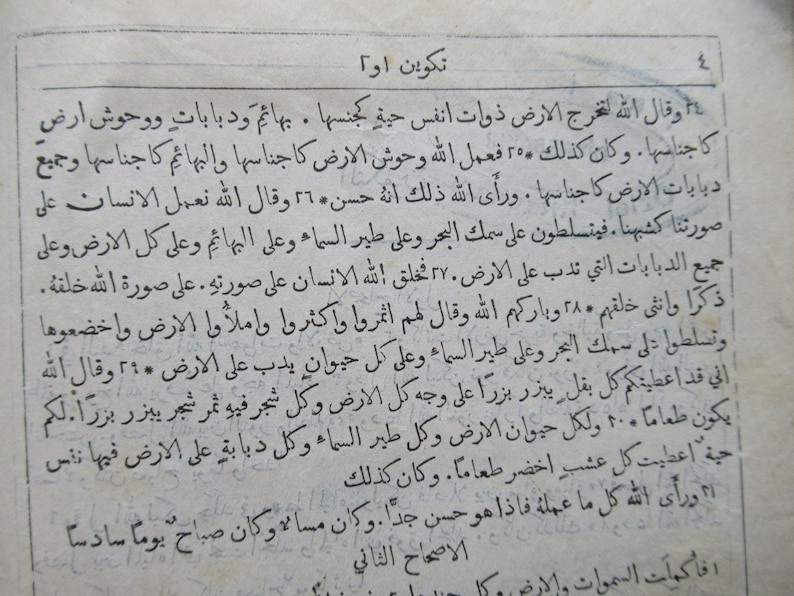 ٤ تكوين ١ و ٢
٢٤ وقال الله لتخرج الارض ذوات انفس حيةٍ كجنسها . بهائمَ ودباباتٍ ووحوش ارضٍ
كاجناسها . وكان كذلك * ٢٥ فعمل الله وحوش الارض كاجناسها والبهائمِ كاجناسها وجميع
دبابات الارض كاجناسها . ورأَى الله ذلك انهُ حسن * ٢٦ وقال الله نعمل الانسان على
صورتنا كشبهنا . فيتسلطون على سمك البحر وعلى طير السماءِ وعلى البهائمِ وعلى كل الارض وعلى
جميع الدبابات التي تدب على الارض . ٢٧ فخلق الله الانسان على صورتهِ . على صورة الله خلقهُ .
ذكرًا وانثى خلقهم * ٢٨ وباركهم الله وقال لهم اثمروا واكثروا واملأُوا الارض واخضعوها
وتسلطوا على سمك البحر وعلى طير السماءِ وعلى كل حيوانٍ يدب على الارض * ٢٩ وقال الله
اني قد اعطيتكم كل بقلٍ يبزر بزرًا على وجه كل الارض وكل شجر فيهِ ثمر شجر يبزر بزرًا . لكم
يكون طعامًا * ٣٠ ولكل حيوان الارض وكل طير السماءِ وكل دبابةٍ على الارض فيها نفس
حية اعطيت كل عشبٍ اخضر طعامًا . وكان كذلك
٣١ ورأَى الله كل ما عملهُ فاذا هو حسن جدًّا . وكان مساءٌ وكان صباحٌ يومًا سادسًا
الاصحاح الثاني
١ فأُكملَت السموات والارض وكل جندها